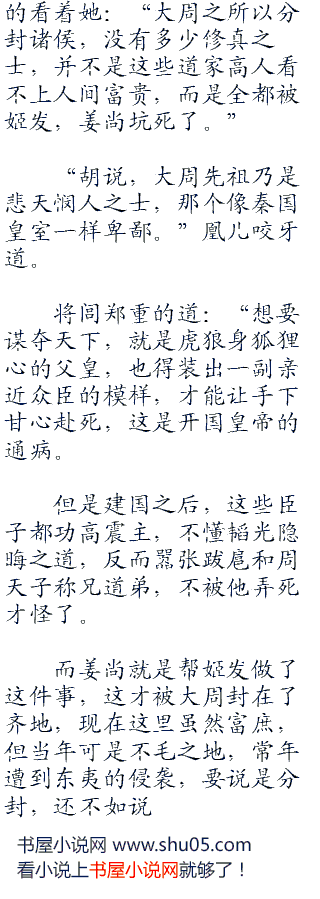 的看着她：“大周之所以分
封诸侯，没有多少修真之
士，并不是这些道家高人看
不上人间富贵，而是全都被
姬发，姜尚坑死了。”
“胡说，大周先祖乃是
悲天悯人之士，那个像秦国
皇室一样卑鄙。”凰儿咬牙
道。
将闾郑重的道：“想要
谋夺天下，就是虎狼身狐狸
心的父皇，也得装出一副亲
近众臣的模样，才能让手下
甘心赴死，这是开国皇帝的
通病。
但是建国之后，这些臣
子都功高震主，不懂韬光隐
晦之道，反而嚣张跋扈和周
天子称兄道弟，不被他弄死
才怪了。
而姜尚就是帮姬发做了
这件事，这才被大周封在了
齐地，现在这里虽然富庶，
但当年可是不毛之地，常年
遭到东夷的侵袭，要说是分
封，还不如说
书屋小说网 www.shu05.com
看小说上书屋小说网就够了！